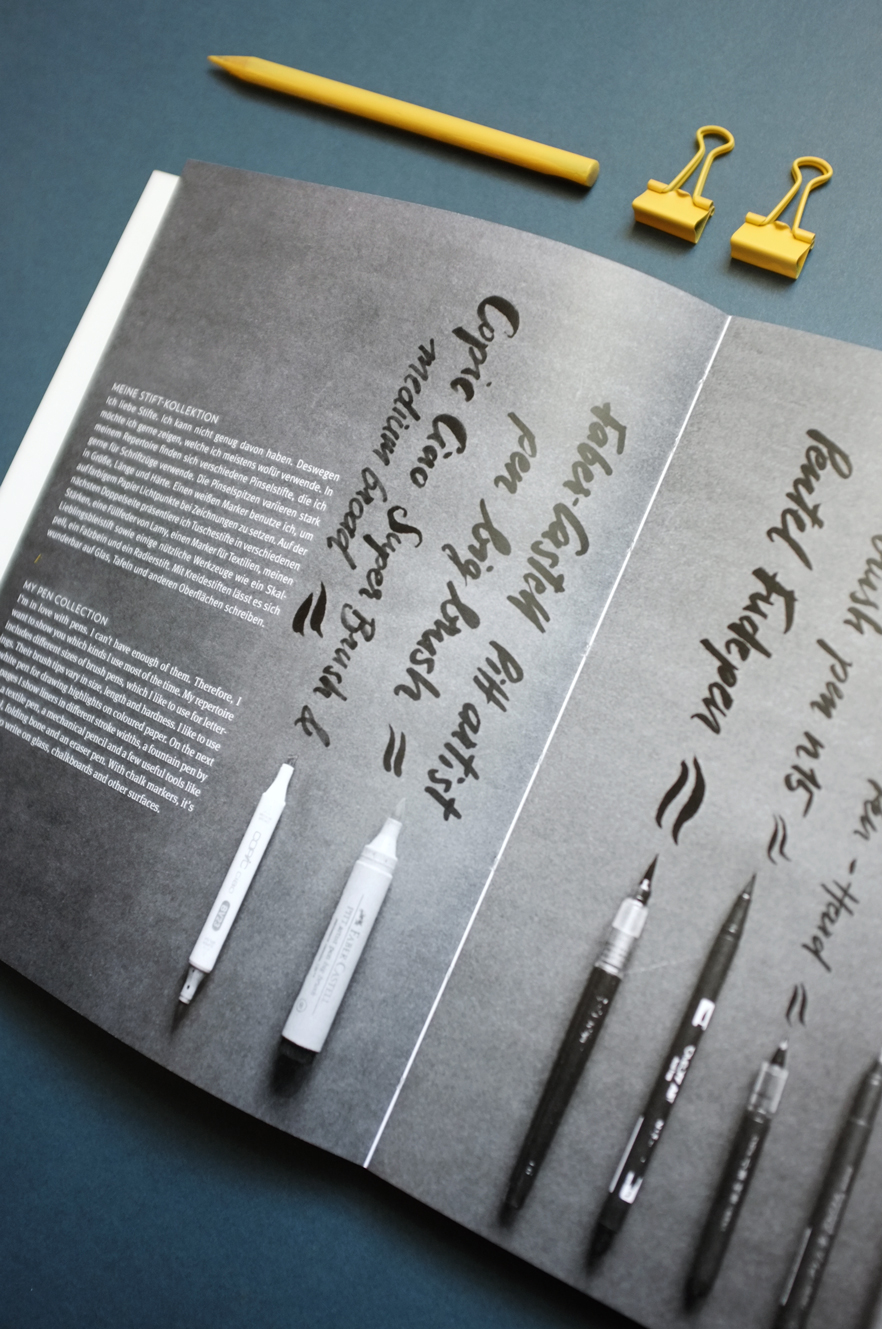 MEINE STIFT-KOLLEKTION
Ich liebe Stifte. Ich kann nicht genug davon haben. Deswegen
möchte ich gerne zeigen, welche ich meistens wofür verwende. In
meinem Repertoire finden sich verschiedene Pinselstifte, die ich
gerne für Schriftzüge verwende. Die Pinselspitzen variieren stark
in Größe, Länge und Härte. Einen weißen Marker benutze ich, um
auf farbigem Papier Lichtpunkte bei Zeichnungen zu setzen. Auf der
nächsten Doppelseite präsentiere ich Tuschestifte in verschiedenen
Stärken, eine Füllfeder von Lamy, einen Marker für Textilien, meinen
Lieblingsbleistift sowie einige nützliche Werkzeuge wie ein Skal-
pell, ein Falzbein und ein Radierstift. Mit Kreidestiften lässt es sich
wunderbar auf Glas, Tafeln und anderen Oberflächen schreiben.
MY PEN COLLECTION
I'm in love with pens. I can't have enough of them. Therefore, I
want to show you which kinds I use most of the time. My repertoire
includes different sizes of brush pens, which I like to use for letter-
ings. Their brush tips vary in size, length and hardness. I like to use
white pen for drawing highlights on coloured paper. On the next
pages I show liners in different stroke widths, a fountain pen by
a textile pen, a mechanical pencil and a few useful tools like
folding bone and an eraser pen. With chalk markers, it's
to write on glass, chalkboards and other surfaces.
Copic Ciao Super Brush &
medium broad
Faber-Castell Pitt artist
pen big brush
Pentel Fudepen
brush pen n15
pen - Hard
COPIC ciao
FABER-CASTELL
PITT artist pen big brush